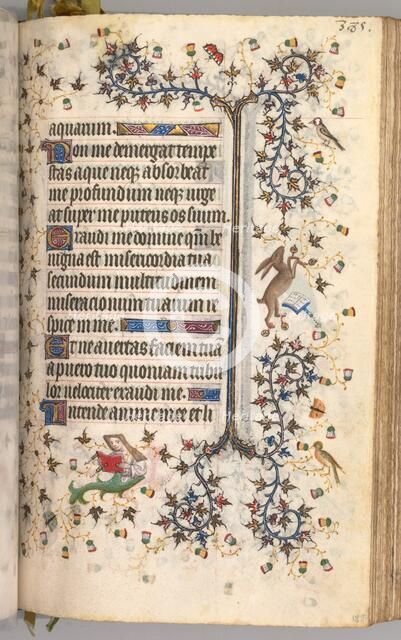 aquarum.
Non me demergat tempe
stas aque neqꝫ absorbeat
me profundum neqꝫ urge
at super me puteus os suum.
Exaudi me domine qm̄ be
nigna est misericordia tua
secundum multitudinem
miseracionum tuarum re
spice in me.
Et ne auertas faciem tuā
a puero tuo quoniam tribu
lor uelociter exaudi me.
Intende anime mee et li